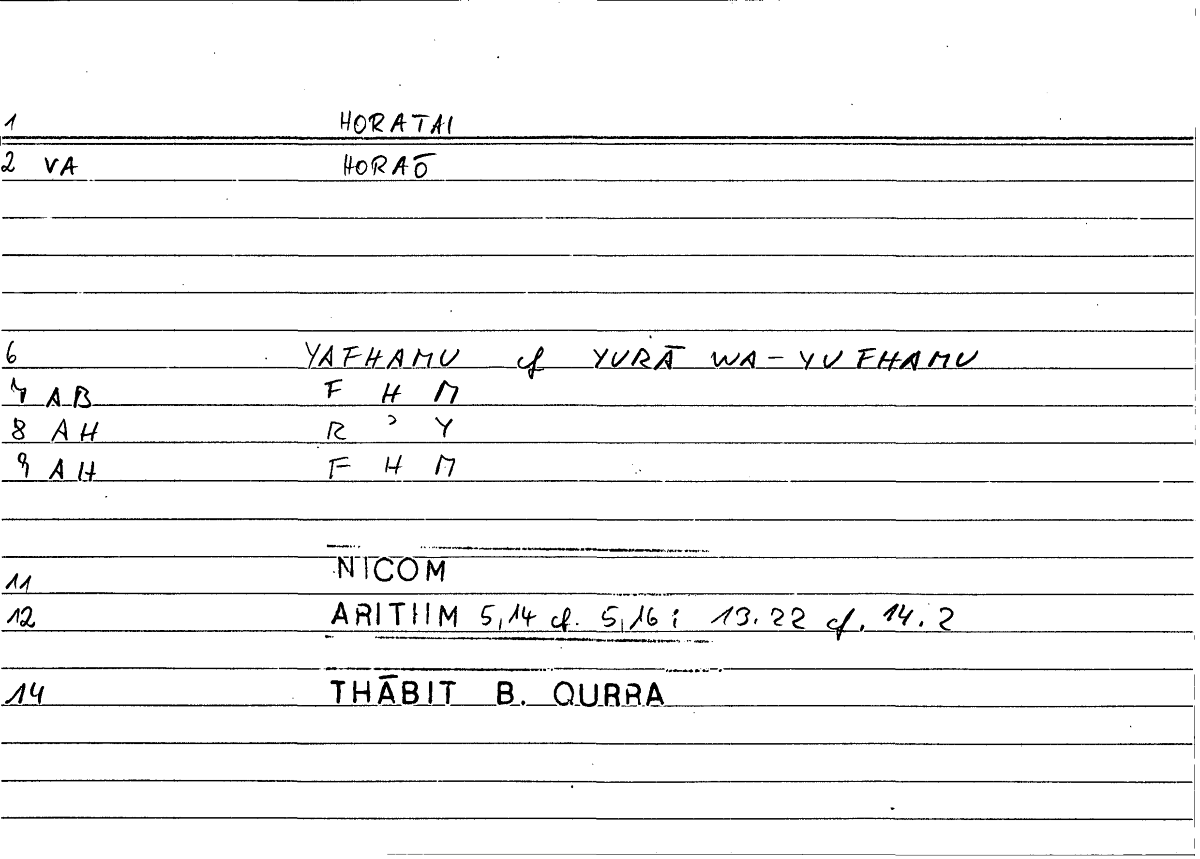 1 HORATAI
2 VA HORAŌ
6 YAFHAMU cf YURĀ WA-YUFHAMU
7 AB F H M
8 AH R ʾ Y
9 AH F H M
11 NICOM
12 ARITHM 5,14 cf. 5,16; 13.22 cf. 14.2
14 THĀBIT B. QURRA